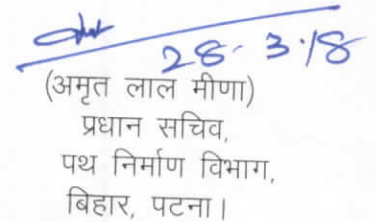 28.3.18
(अमृत लाल मीणा)
प्रधान सचिव,
पथ निर्माण विभाग,
बिहार, पटना।